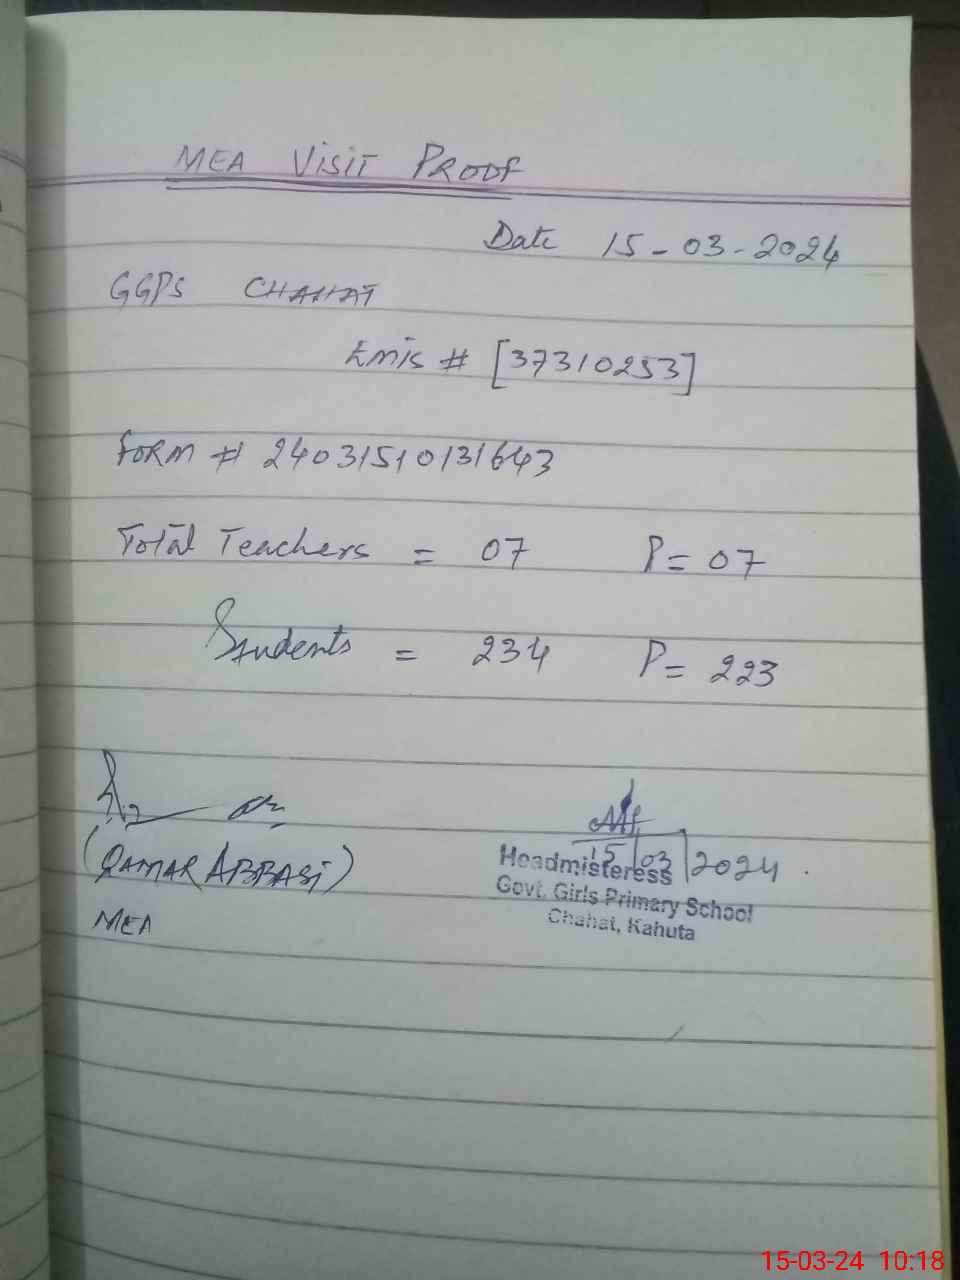 MEA Visit Proof
Date 15-03-2024
GGPS CHAHAT
Emis # [37310253]
Form # 24031510131643
Total Teachers = 07 P= 07
Students = 234 P= 223
(QAMAR ABBASI)
MEA
15/03/2024
Headmisteress
Govt. Girls Primary School
Chahat, Kahuta
15-03-24 10:18